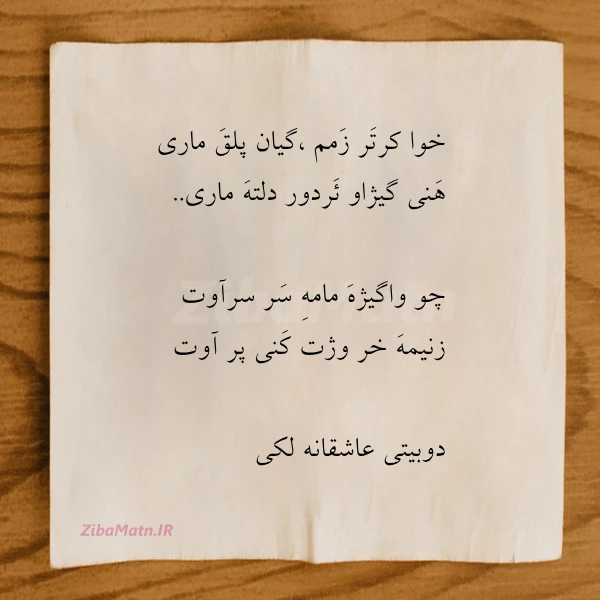 خوا کرتَر زَمم ،گیان پلقَ ماری
هَنی گیژاو ئَردور دلتهَ ماری..
چو واگیژهَ مامهِ سَر سرآوت
زنیمهَ خر وژت کَنی پر آوت
دوبیتی عاشقانه لکی
ZibaMatn.IR